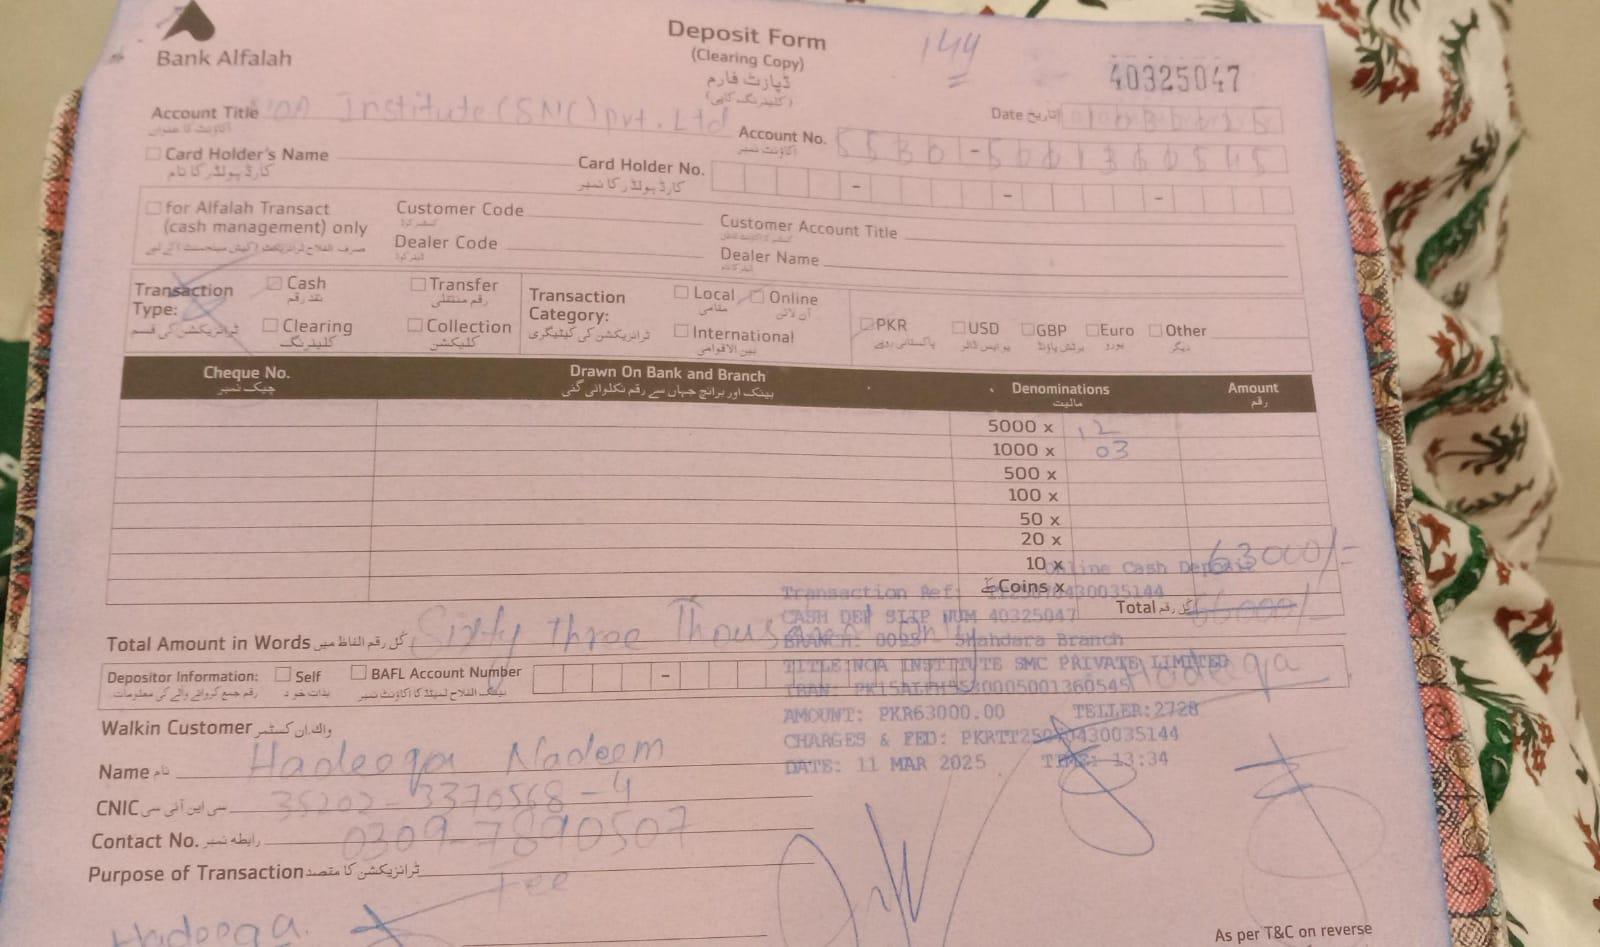 Bank Alfalah
Deposit Form
(Clearing Copy)
ڈپازٹ فارم
(کلیئرنگ کاپی)
144
40325047
Account Title Institute (SMC) pvt. Ltd
اکاؤنٹ کا عنوان
Date تاریخ
Account No. 5530-5001360545
اکاؤنٹ نمبر
Card Holder's Name
کارڈ ہولڈر کا نام
Card Holder No.
کارڈ ہولڈر کا نمبر
for Alfalah Transact
(cash management) only
صرف الفلاح ٹرانزیکٹ (کیش مینجمنٹ) کے لیے
Customer Code
Dealer Code
Customer Account Title
Dealer Name
Transaction
Type:
ٹرانزیکشن کی قسم
Cash
نقد رقم
Transfer
رقم منتقلی
Clearing
کلیئرنگ
Collection
کلیکشن
Transaction
Category:
ٹرانزیکشن کی کیٹیگری
Local
مقامی
Online
آن لائن
International
بین الاقوامی
PKR
پاکستانی روپے
USD
یو ایس ڈالر
GBP
برٹش پاؤنڈ
Euro
یورو
Other
دیگر
Cheque No.
چیک نمبر
Drawn On Bank and Branch
بینک اور برانچ جہاں سے رقم نکلوائی گئی
Denominations
مالیت
Amount
رقم
5000 x 12
1000 x 03
500 x
100 x
50 x
20 x
10 x
Coins x
63000/-
Online Cash Deposit
Total کل رقم
Transaction Ref:
CASH DEP SLIP NUM 40325047
BRANCH: Shahdara Branch
TITLE:NOA INSTITUTE SMC PRIVATE LIMITED
AMOUNT: PKR63000.00 TELLER:2728
CHARGES & FED:
DATE: 11 MAR 2025 TIME: 13:34
Total Amount in Words کل رقم الفاظ میں Sixty three Thousand
Depositor Information:
رقم جمع کروانے والے کی معلومات
Self
بذات خود
BAFL Account Number
بینک الفلاح لمیٹڈ کا اکاؤنٹ نمبر
Hadeeqa
Walkin Customer واک ان کسٹمر
Name نام Hadeeqa Nadeem
CNIC سی این آئی سی 35202-3370568-4
Contact No. رابطہ نمبر 0309-7890507
Purpose of Transaction ٹرانزیکشن کا مقصد Fee
Hadeeqa.
As per T&C on reverse